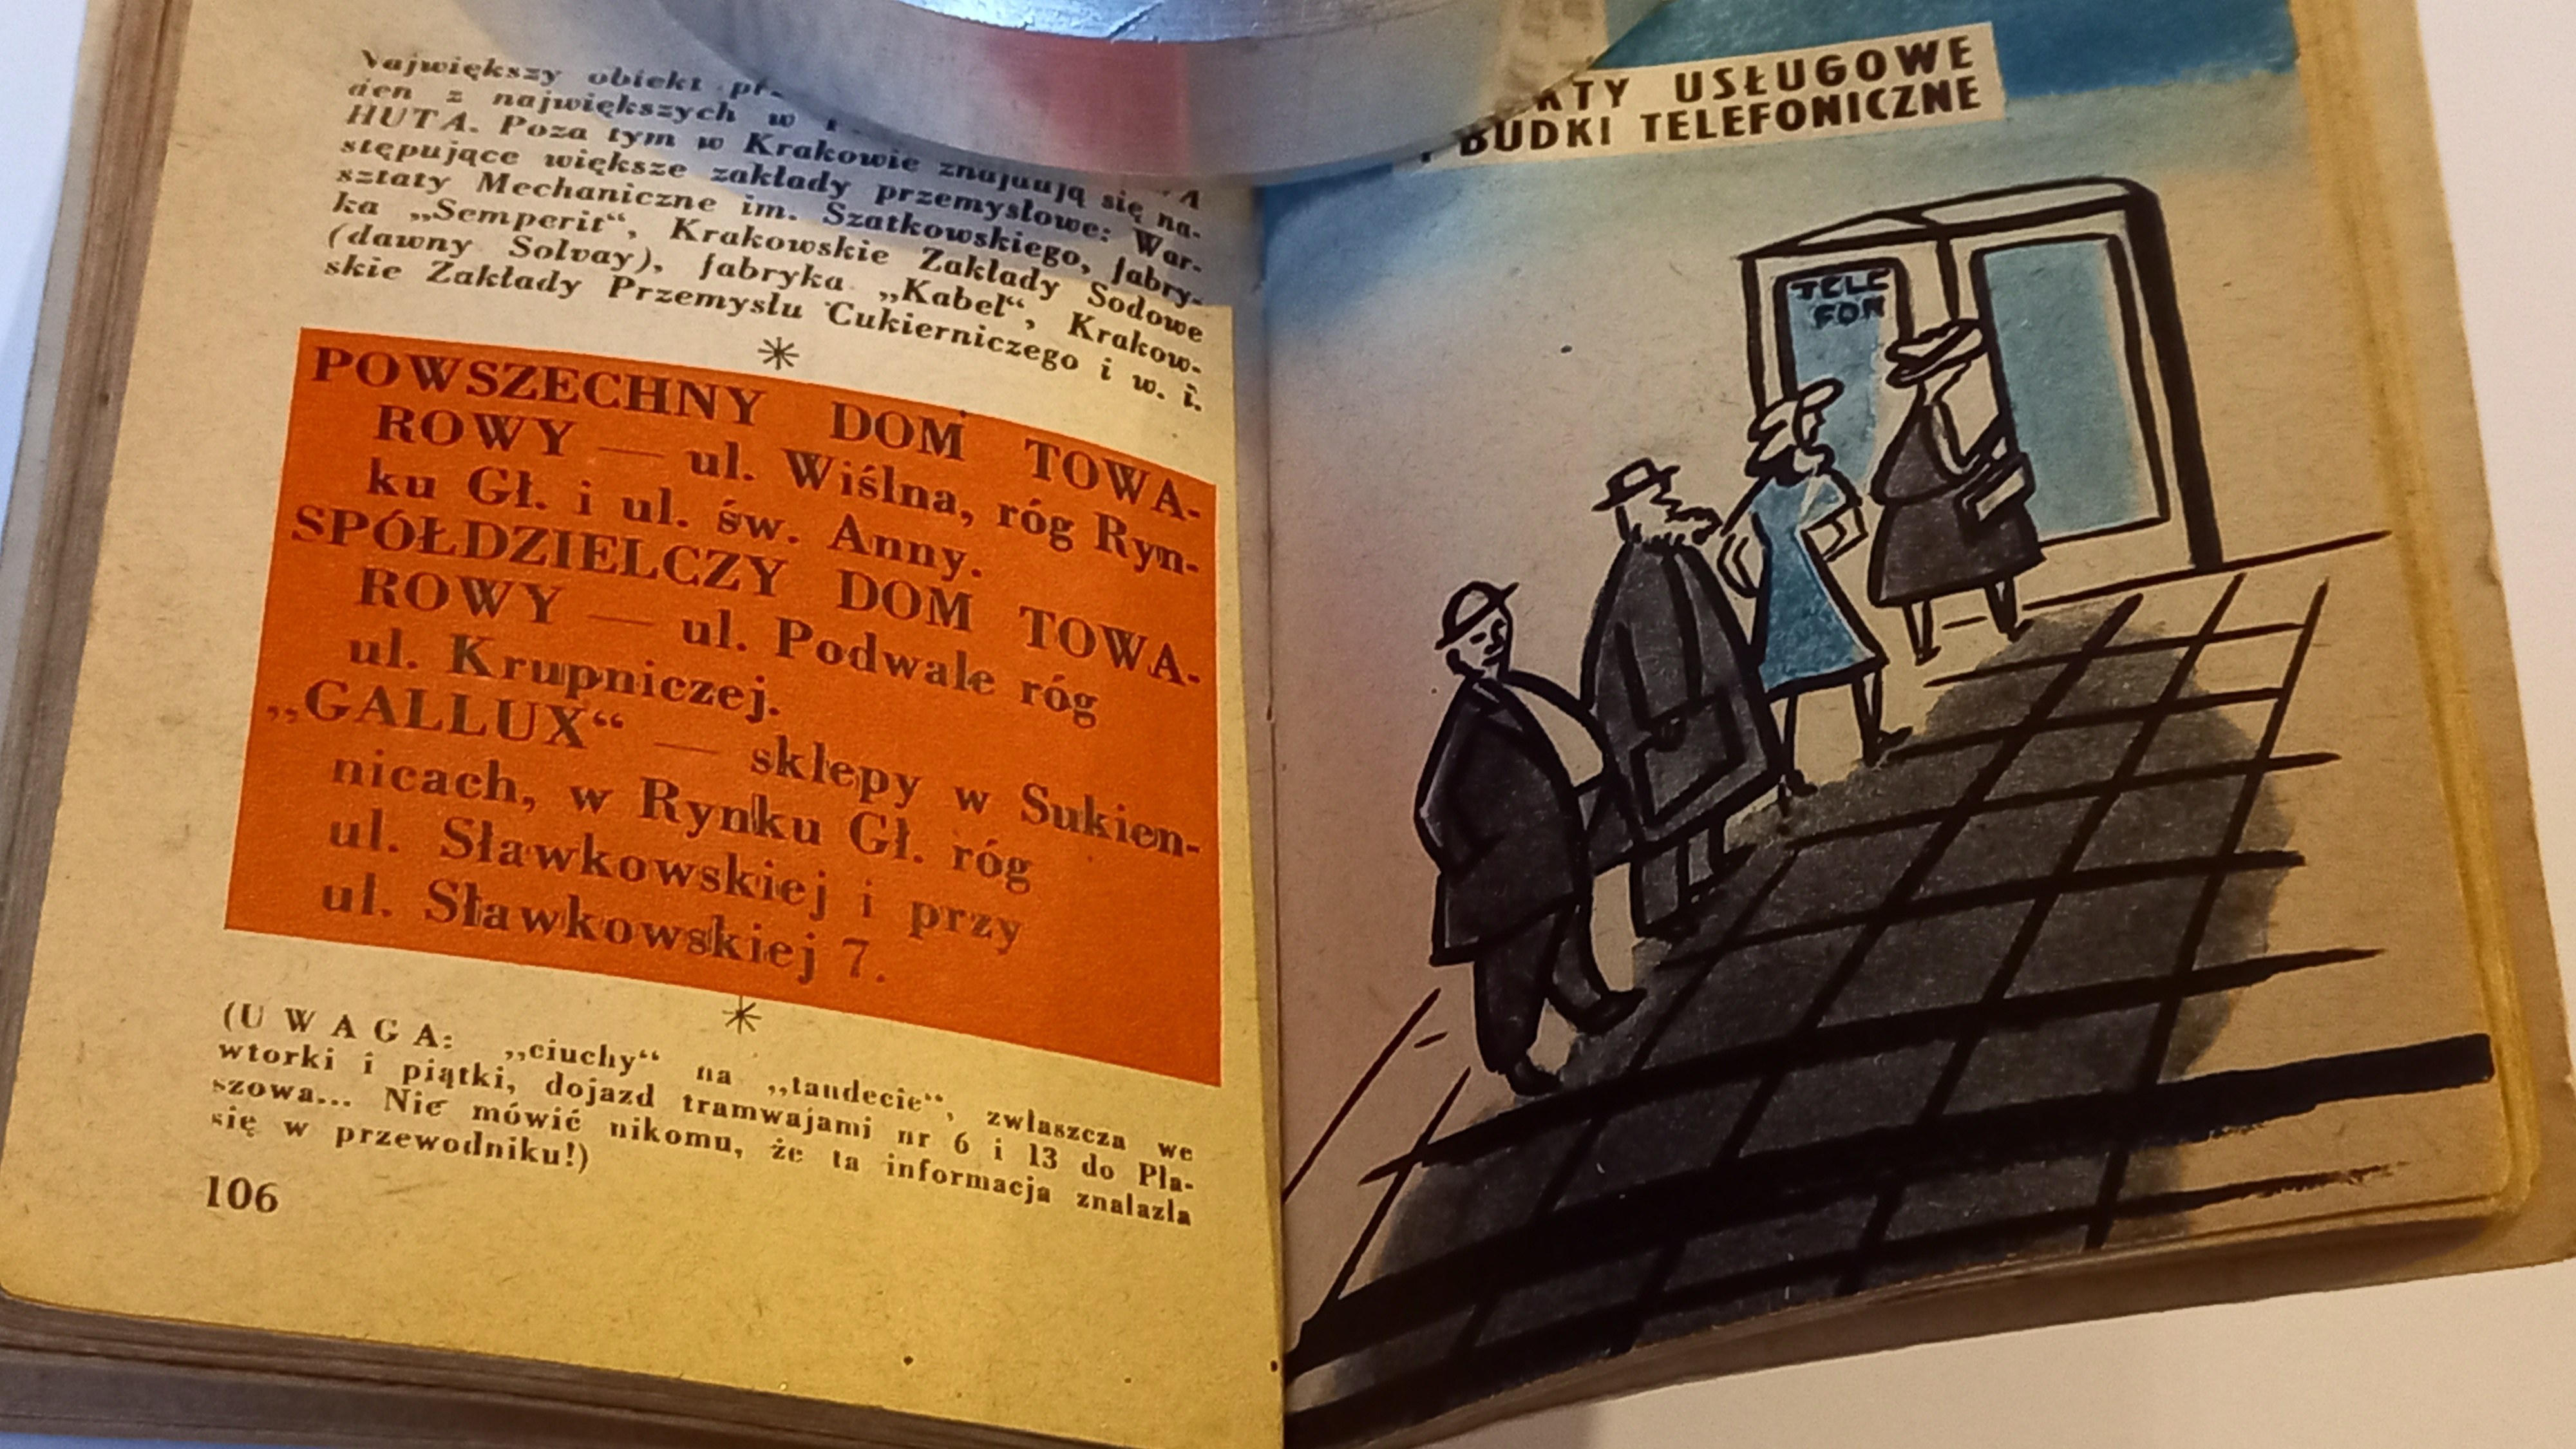 Największy obiekt
den z największych w
HUTA. Poza tym w Krakowie znajdują się na-
stępujące większe zakłady przemysłowe: War-
sztaty Mechaniczne im. Szatkowskiego, fabry-
ka „Semperit“, Krakowskie Zakłady Sodowe
(dawny Solvay), fabryka „Kabel“, Krakow-
skie Zakłady Przemysłu Cukierniczego i w. i.
POWSZECHNY DOM TOWA-
ROWY — ul. Wiślna, róg Ryn-
ku Gł. i ul. św. Anny.
SPÓŁDZIELCZY DOM TOWA-
ROWY — ul. Podwale róg
ul. Krupniczej.
„GALLUX“ — sklepy w Sukien-
nicach, w Rynku Gł. róg
ul. Sławkowskiej i przy
ul. Sławkowskiej 7.
(UWAGA: „ciuchy“ na „tandecie“, zwłaszcza we
wtorki i piątki, dojazd tramwajami nr 6 i 13 do Pła-
szowa... Nie mówić nikomu, że ta informacja znalazła
się w przewodniku!)
106
USŁUGOWE
BUDKI TELEFONICZNE
TELE
FON